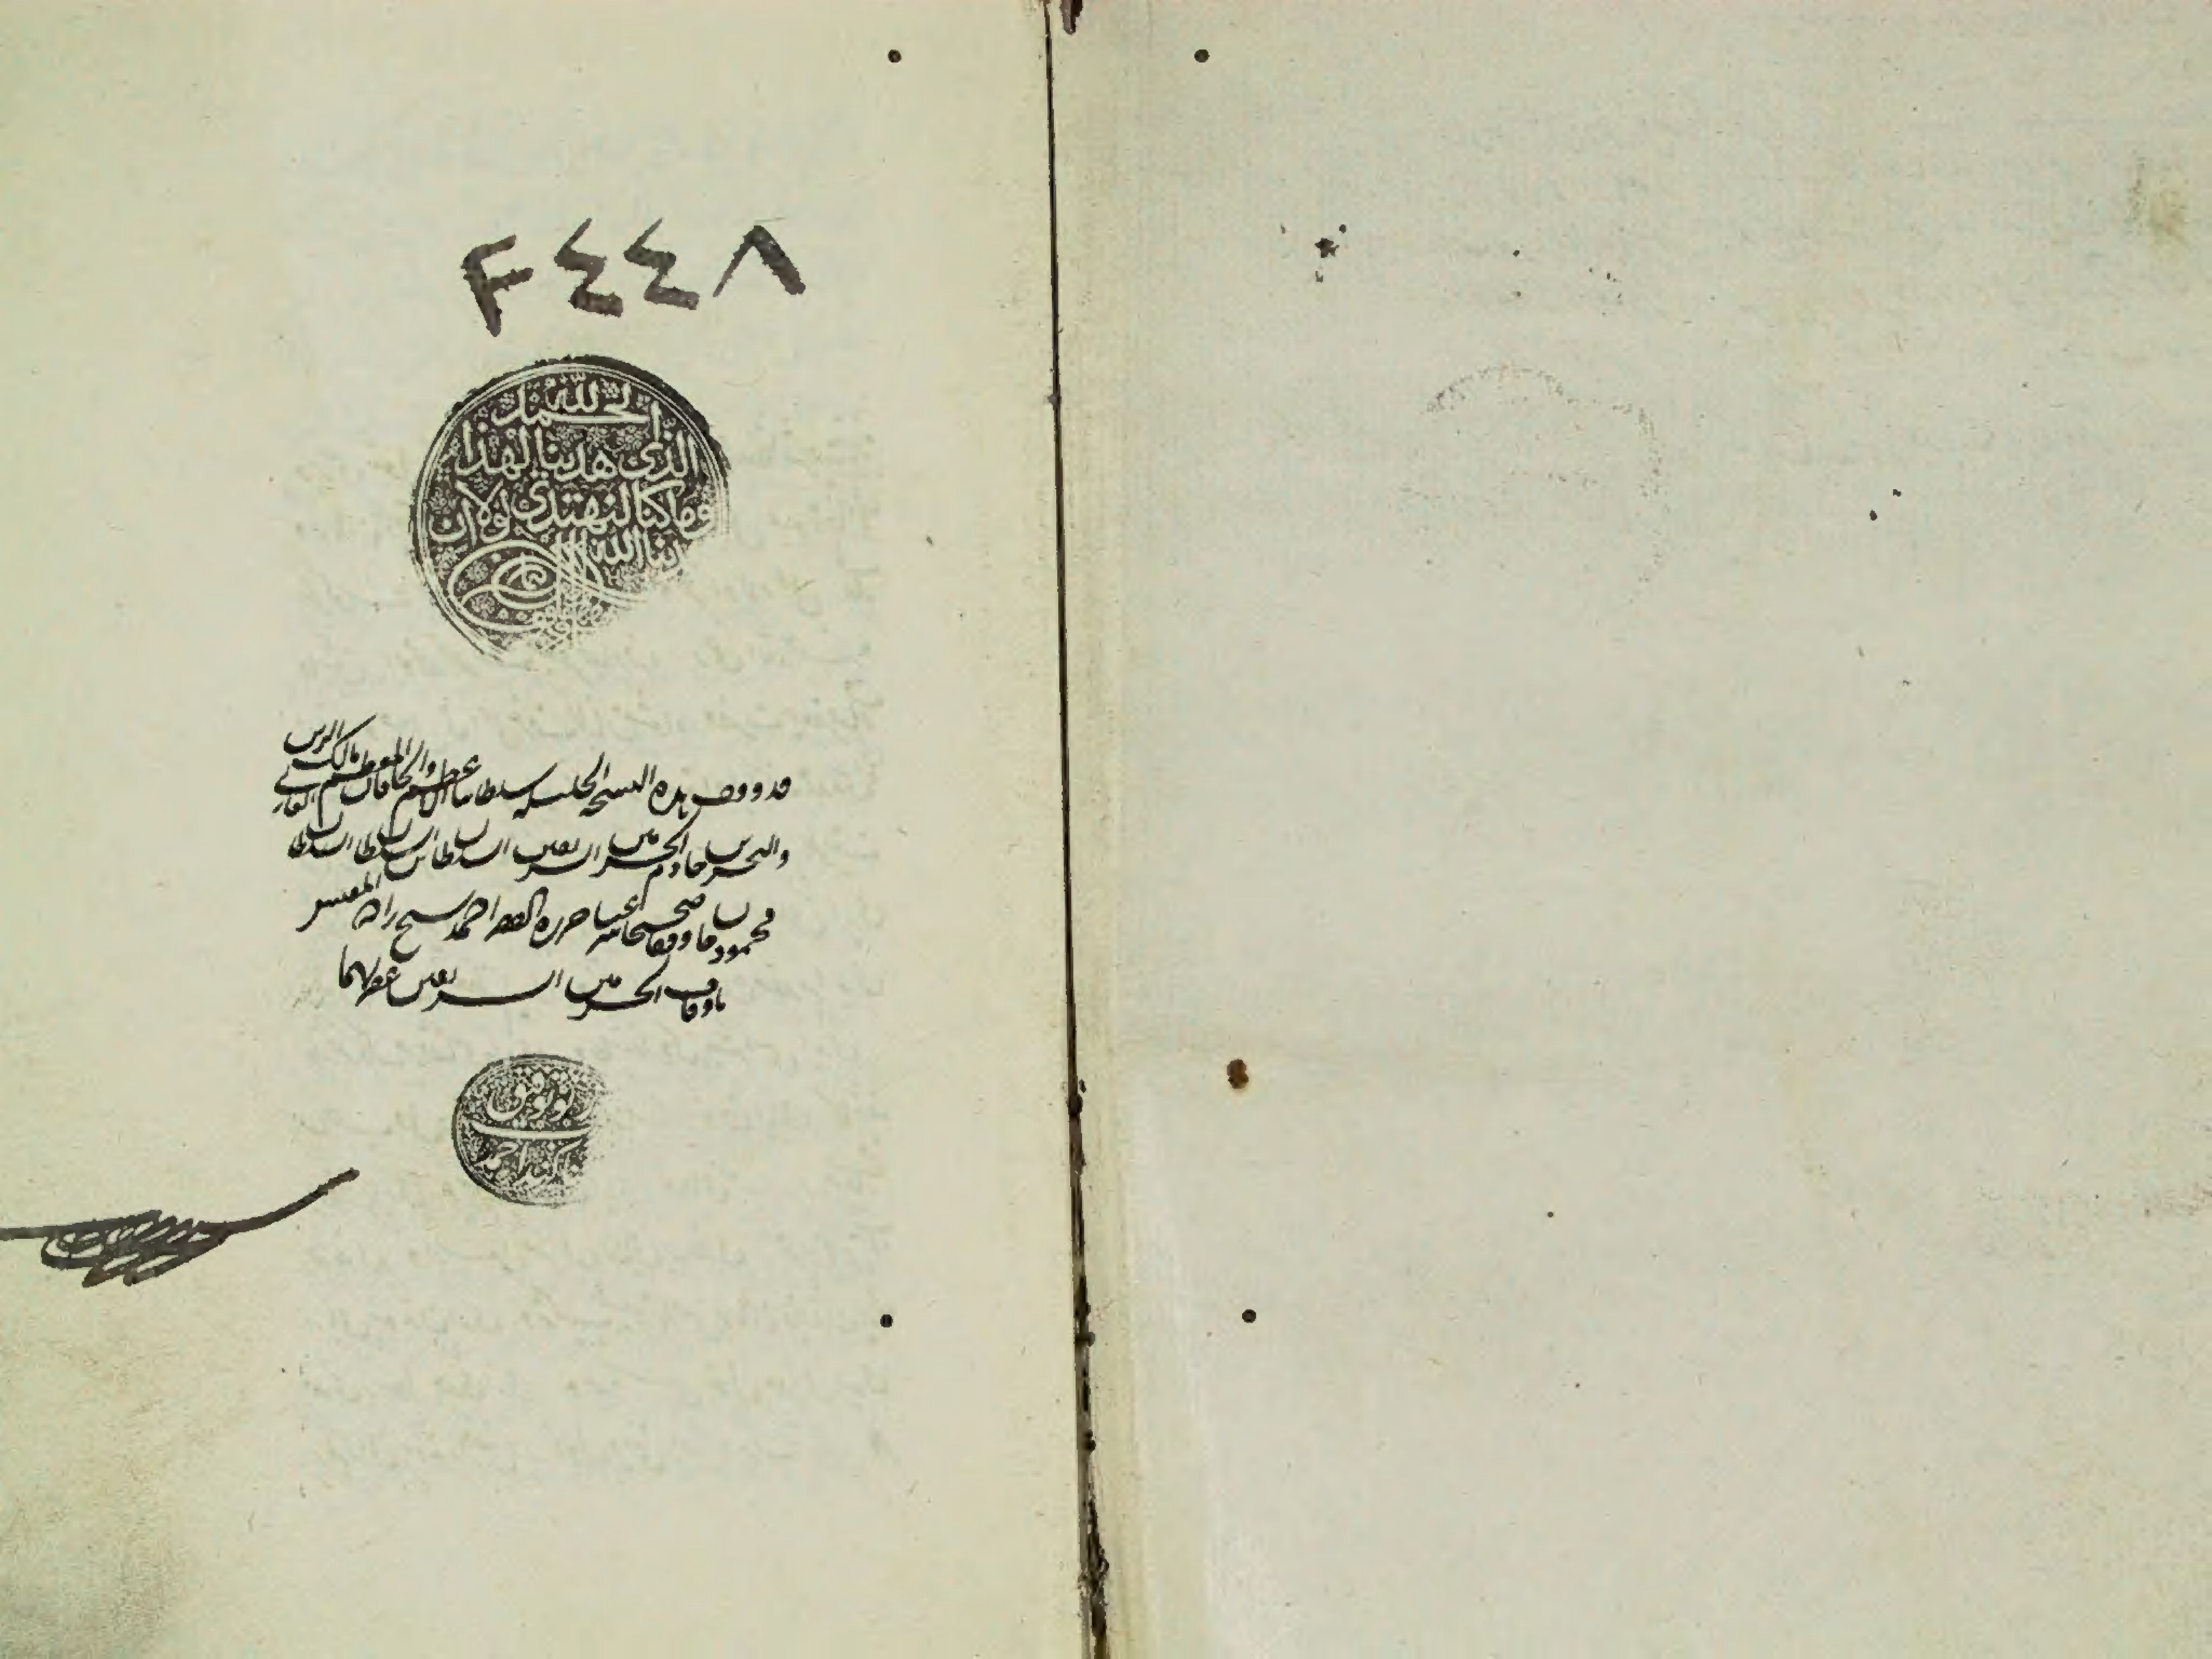 ٢٤٤٨
الحمد لله
الذى هدينا لهذا
وما كنا لنهتدى لولا ان
هدينا الله
قد وقف هذه النسخة الجليلة سلطاننا الاعظم والخاقان المعظم مالك البرين
والبحرين خادم الحرمين الشريفين السلطان بن السلطان السلطان
الغازى محمود خان وقفا صحيحا شرعيا حرره الفقير احمد شيخ زاده المفتش
باوقاف الحرمين الشريفين غفر لهما
توفيق
احمد